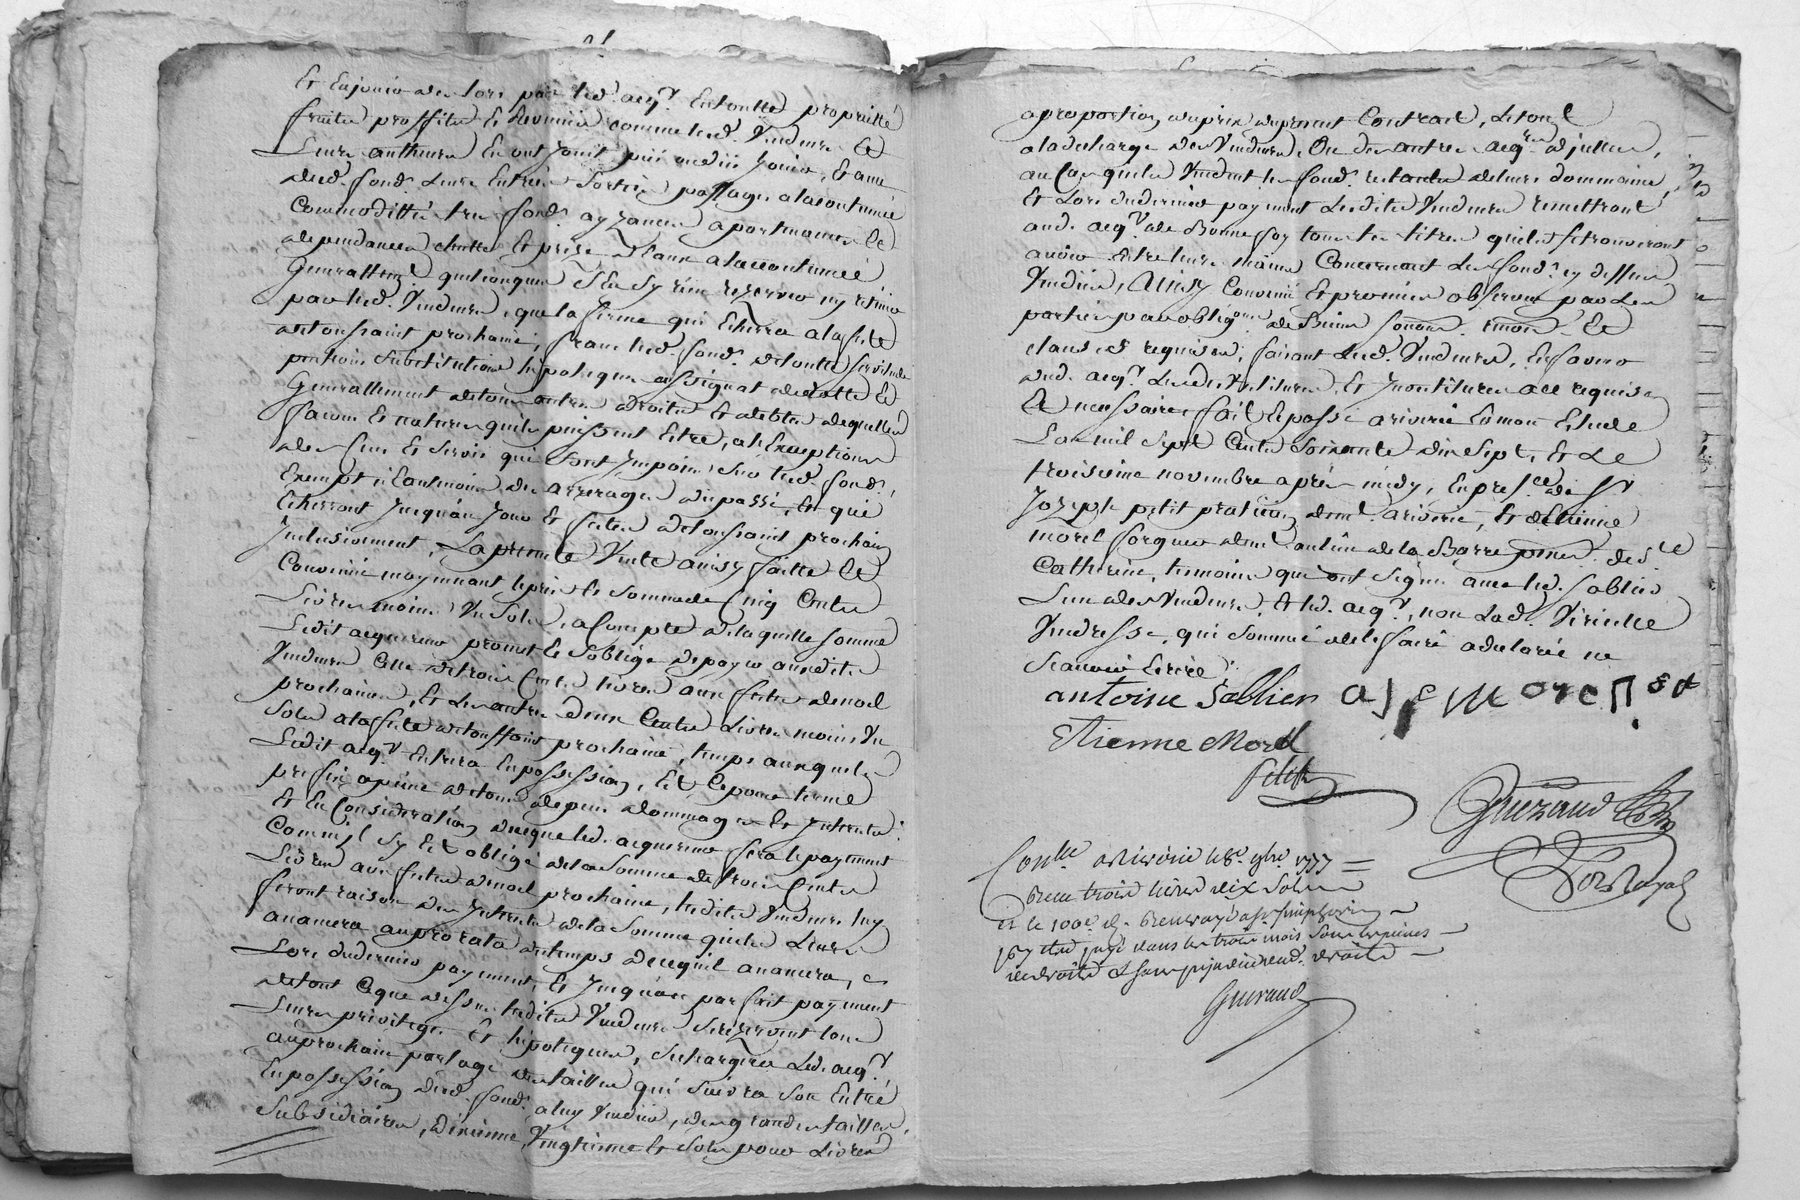 Et Enjouir des lors par led. acqr. Entoutte propriété
fruits proffits Et Revenus comme led. Vendeurs Et
Leurs autheurs En ont Jouit puis ou dii Jouir, Et avec
dud. fond. Leurs Entrées Sorties passages alacoutumée
Commodittés tres fonds ayzances apartenances Et
dependances cheutte Et prise d'Eaux alaccoutumée
Generallemt. quelconques S'En Sy rien rezerver ny retenir
par led. Vendeurs, que la ferme qui Echerra alafeste
detoussaint prochaine, franc led. fond. detoutte servitude
pention Substitutions hipoteques assignat de dotte Et
Generallement detous autres droits Et debtes dequelles
facons Et natures quils puissent Estre, al'Exceptions
des Cens Et Servis qui Sont Imposés Sur led. fond.
Exempt néantmoins des arrerages dupassé, Et qui
Echerront Jusqu'au Jour Et feste detoussaint prochain
Inclusivement, La presente Vente ainsy faitte Et
Convenüe moyennant leprix Et Somme de Cinq Cents
Livres moins Un Sols, acompte delaquelle somme
Ledit acquereur promet Et Soblige depayer auxdits
Vendeurs Celle detrois Cents livres aux festes denoel
prochaines, Et Les autres deux Cents Livres moins Un
Sols alafeste detoussaint prochaine, temps auxquels
Ledit acqr. Entrera En possession, Et Ce pour terme
prefix apeine detous depens dommages Et Interets
Et En Consideration duqque led. acquereur fera le payement
Comm'il Sy Est obligé delad Somme detrois Cents
Livres aux festes denoel prochaine, lesdits Vendeurs luy
feront raison des Interets dela Somme quil Leurs
avancera auprorata du temps decequil avancera,
Lors dudernier payement, Et Jusqu'au parfait payement
detout Ceque dessus lesdits Vendeurs Se rezervent tous
Leurs privileges Et hipoteques, Sechargera Led. acqr.
auprochain partage des tailles qui Suivra Son Entrée
En possession dud. fond. aluy Vendus, des grandes tailles,
Subsidiaires, dixieme, Vingtieme Et Sols pour Livres
aproportion duprix du present Contract, Letout
aladecharge des Vendeurs, Ou des autres acqrs. d'jullien,
au Cas quils Vendent les fonds restants deleurs dommaine,
Et Lors dudernier payement Lesdits Vendeurs remettront
aud. acqr. de Bonne foy tous les titres quils se trouveront
avoir Entre leurs mains Concernant Les fonds cy dessus
Vendus, Ainsy Convenu Et promis observer par Les
parties par obligon. de Biens soumn. renon. Et
clauses requises; faisant Lesd. Vendeurs, En faveur
dud. acqr. Lesdevestitures, Et Investitures ace requises
Et necessaires, fait Et passé a riverie En mon Etude
Lan mil Sept Cents Soixante dix Sept, Et Le
troisieme novembre après midy, En presce. de Sr.
Jozeph petit praticien demt. a riverie, Et d'Etienne
morel forgeur demt. au lieu de la Barre de Ste
Catherine, temoins qui ont Signé avec led. Sablier
L'un des Vendeurs, Et led. acqr., non Lad. Virieulle
Venderesse, qui Sommée delefaire a declaré ne
Scavoir Ecrire
antoine Sablier
Etienne Morel
Petit
Gueraud
Nore Royal
Conlle. a Riverie le 8e. 9bre 1777
Receu trois livres dix Sols
et le 100e d. Renvoyé a St Simphorien
pour Etre payé dans les trois mois Sous les peines
de droits & Sans prejudice aud. droits
Gueraud